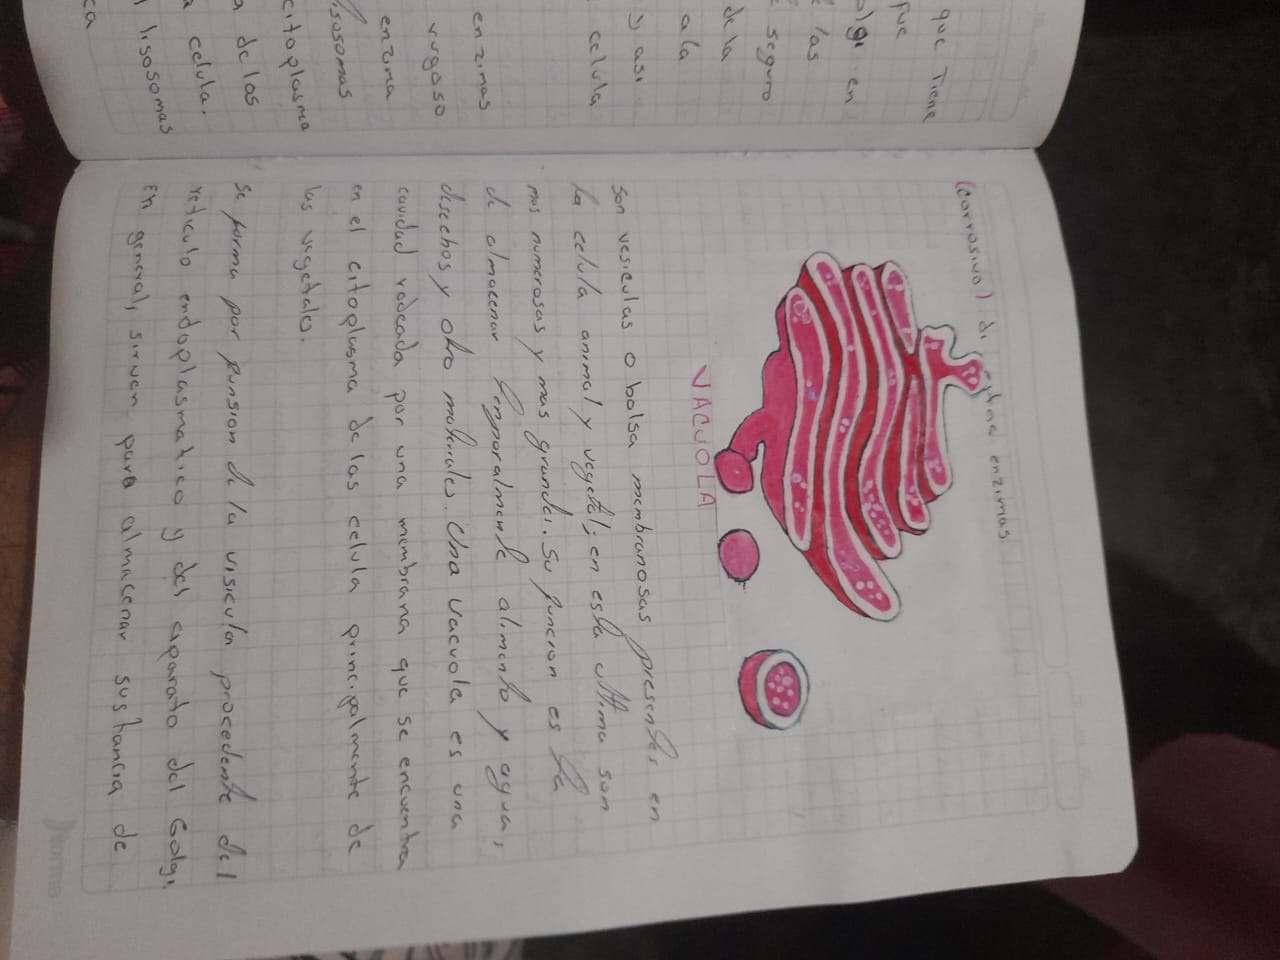 que Tiene
que
olgi en
las
seguro
de la
a la
y asi
celula
enzimas
rugoso
enzima
lisosomas
citoplasma
a de los
a celula.
lisosomas
ca
(corrosivo) di estas enzimas
VACUOLA
son vesiculas o bolsa membranosas presentes en
la celula animal y vegetal; en esta ultima son
mas numerosas y mas grande. Su funcion es la
de almacenar temporalmente alimento y agua,
desechos y otro materiales. Una vacuola es una
cavidad rodeada por una membrana que se encuentra
en el citoplasma de las celula principalmente de
las vegetales.
Se forma por funsion de la visicula procedente del
reticulo endoplasmatico y del aparato del Golgi
En general, sirven para almacenar sustancia de
Norma